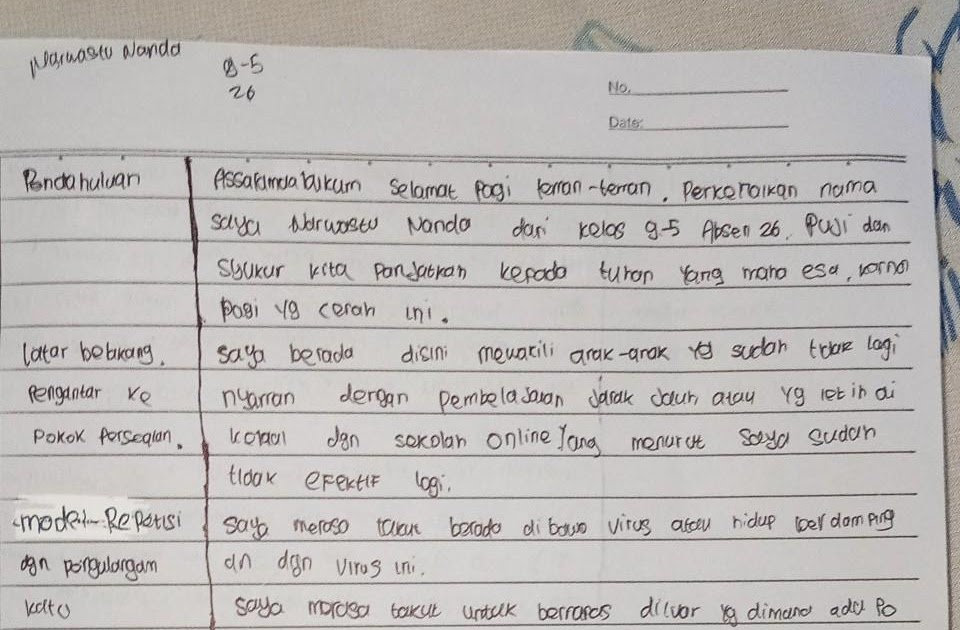 Naruastu Nanda
9-5
26
No.
Date:
Pendahuluan Assalamualaikum Selamat Pagi teman-teman. Perkenalkan nama
saya Naruastu Nanda dari kelas 9-5 Absen 26. Puji dan
Syukur kita panjatkan kepada tuhan Yang maha esa, karna
pagi yg cerah ini.
Latar belakang. saya berada disini mewakili anak-anak yg sudah tidak lagi
Pengantar ke nyaman dengan pembelajaran jarak jauh atau yg lebih di
Pokok Persoalan. kenal dgn sekolah online yang menurut saya sudah
tidak efektif lagi.
model Repetisi saya merasa takut berada di bawa virus atau hidup berdamping
dgn pengulangan an dgn virus ini.
kata saya merasa takut untuk bernapas diluar yg dimana ada Po